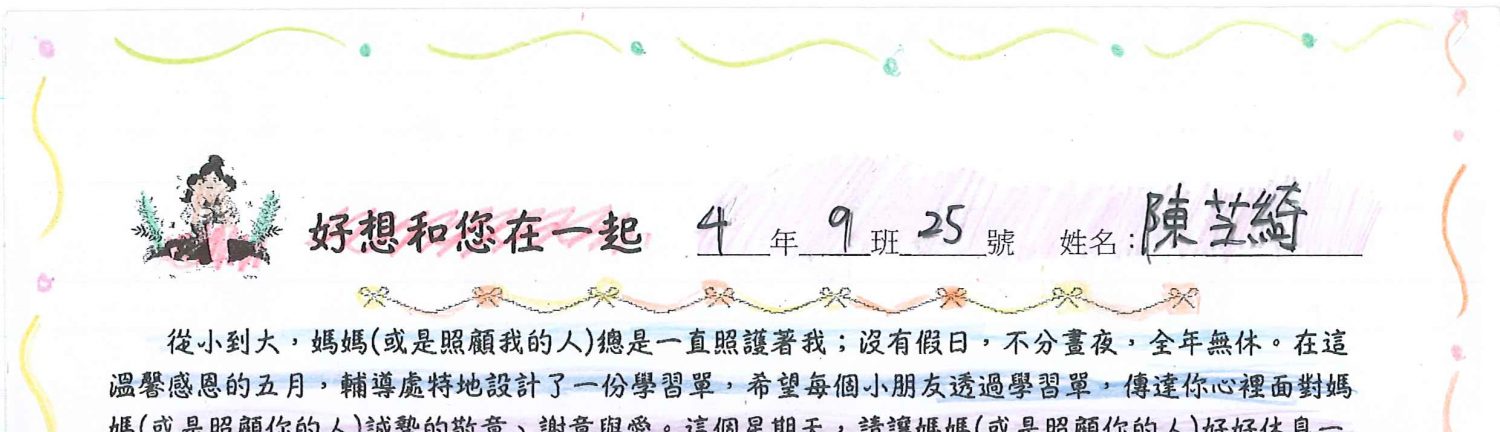 好想和您在一起 4年9班25號 姓名：陳芝綺
從小到大，媽媽(或是照顧我的人)總是一直照護著我；沒有假日，不分晝夜，全年無休。在這
溫馨感恩的五月，輔導處特地設計了一份學習單，希望每個小朋友透過學習單，傳達你心裡面對媽
媽(或是照顧你的人)誠摯的敬意、謝意與愛。這個星期天，請讓媽媽(或是照顧你的人)好好休息一